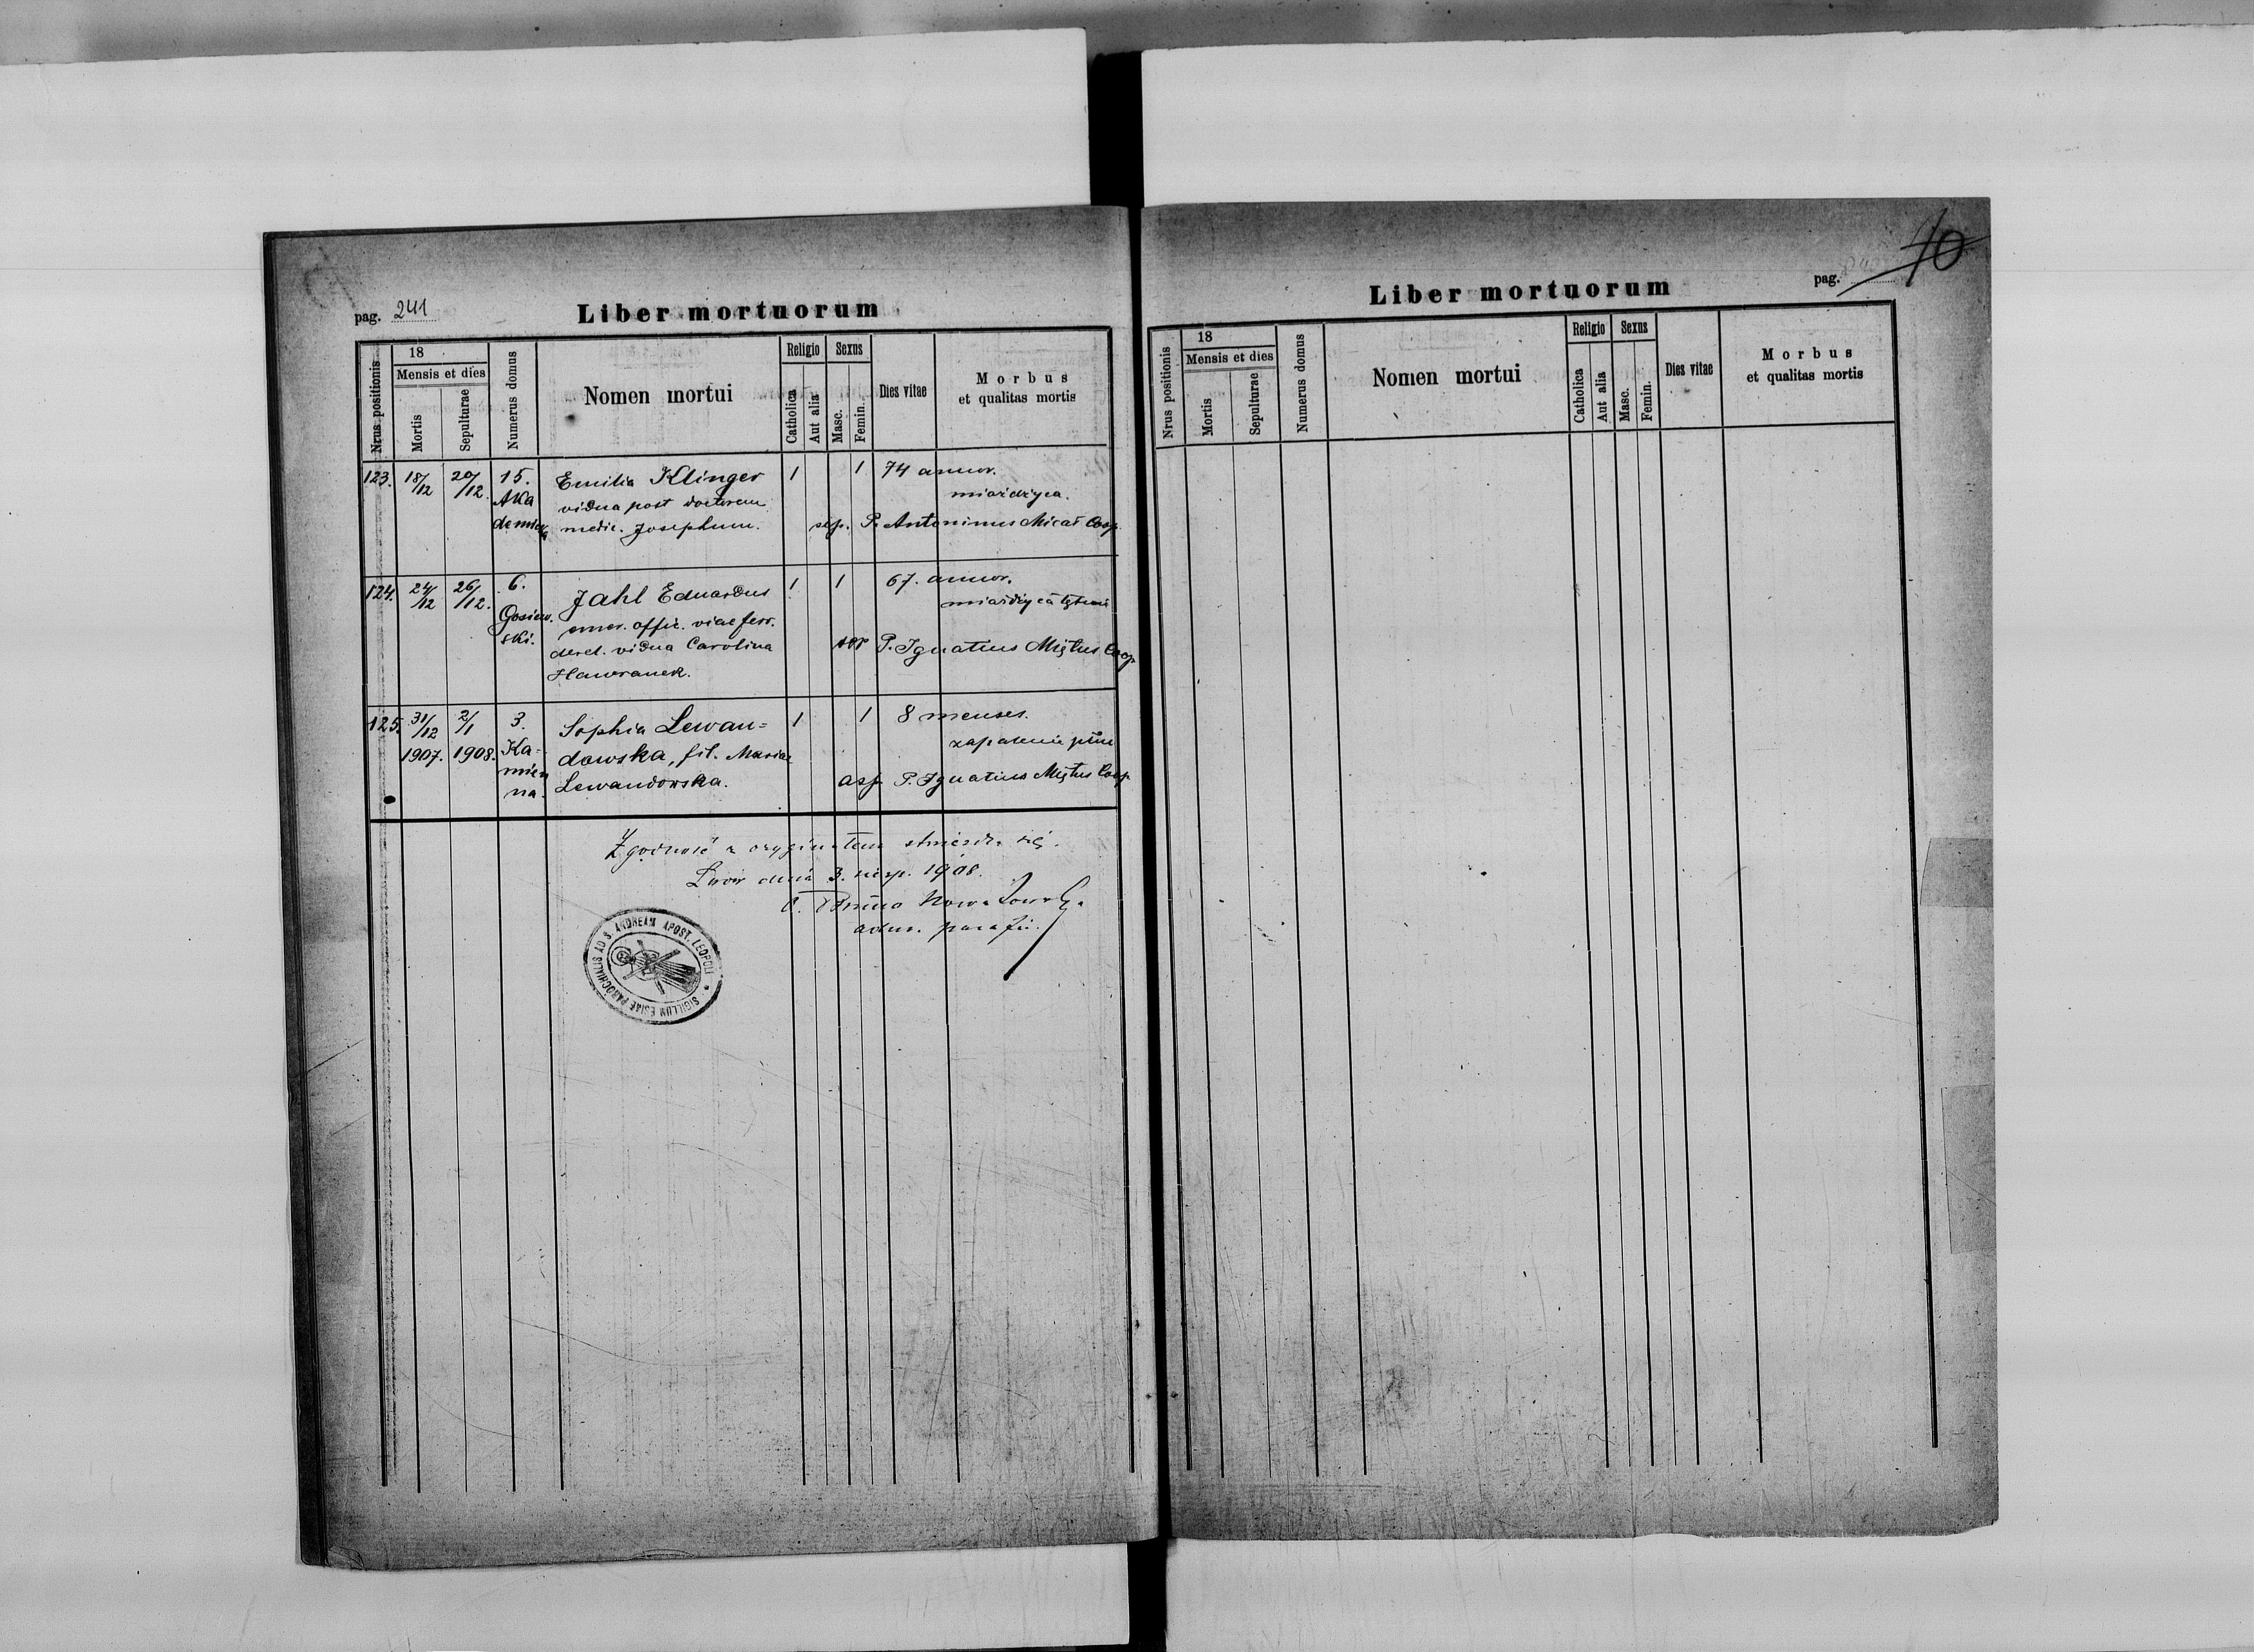 pag. 241
Liber mortuorum
Nrus positionis
18
Mensis et dies
Mortis
Sepulturae
Numerus domus
Nomen mortui
Religio
Catholica
Aut alia
Sexus
Masc.
Femin.
Dies vitae
Morbus
et qualitas mortis
123. 18/12 20/12. 15. Emilia Klinger 1 1 74 annor.
Aka vidua post doctorem miażdżyca.
demicka medic. Josephum. sep. P. Antoninus Micał Coop.
124. 24/12 26/12. 6. Jahl Eduardus 1 1 67. annor.
Gosiew. emer. offic. viae ferr. miażdżyca tętnic
ski. derel. vidua Carolina P. Ignatius Miętus Coop
Hawranek.
125. 31/12 2/1 3. Sophia Lewan= 1 1 8 menses.
1907. 1908. Ka- dowska, fil. Mariae zapalenie płuc
mien Lewandowska. asp P. Ignatius Miętus Coop
na.
Zgodność z oryginałem stwierdza się.
Lwów dnia 3. 1908.
adm. parafii.
SIGILLUM ESIAE PAROCHIALIS AD S. ANDREAM APOST. LEOPOLI
Liber mortuorum
pag.
10
Nrus positionis
18
Mensis et dies
Mortis
Sepulturae
Numerus domus
Nomen mortui
Religio
Catholica
Aut alia
Sexus
Masc.
Femin.
Dies vitae
Morbus
et qualitas mortis